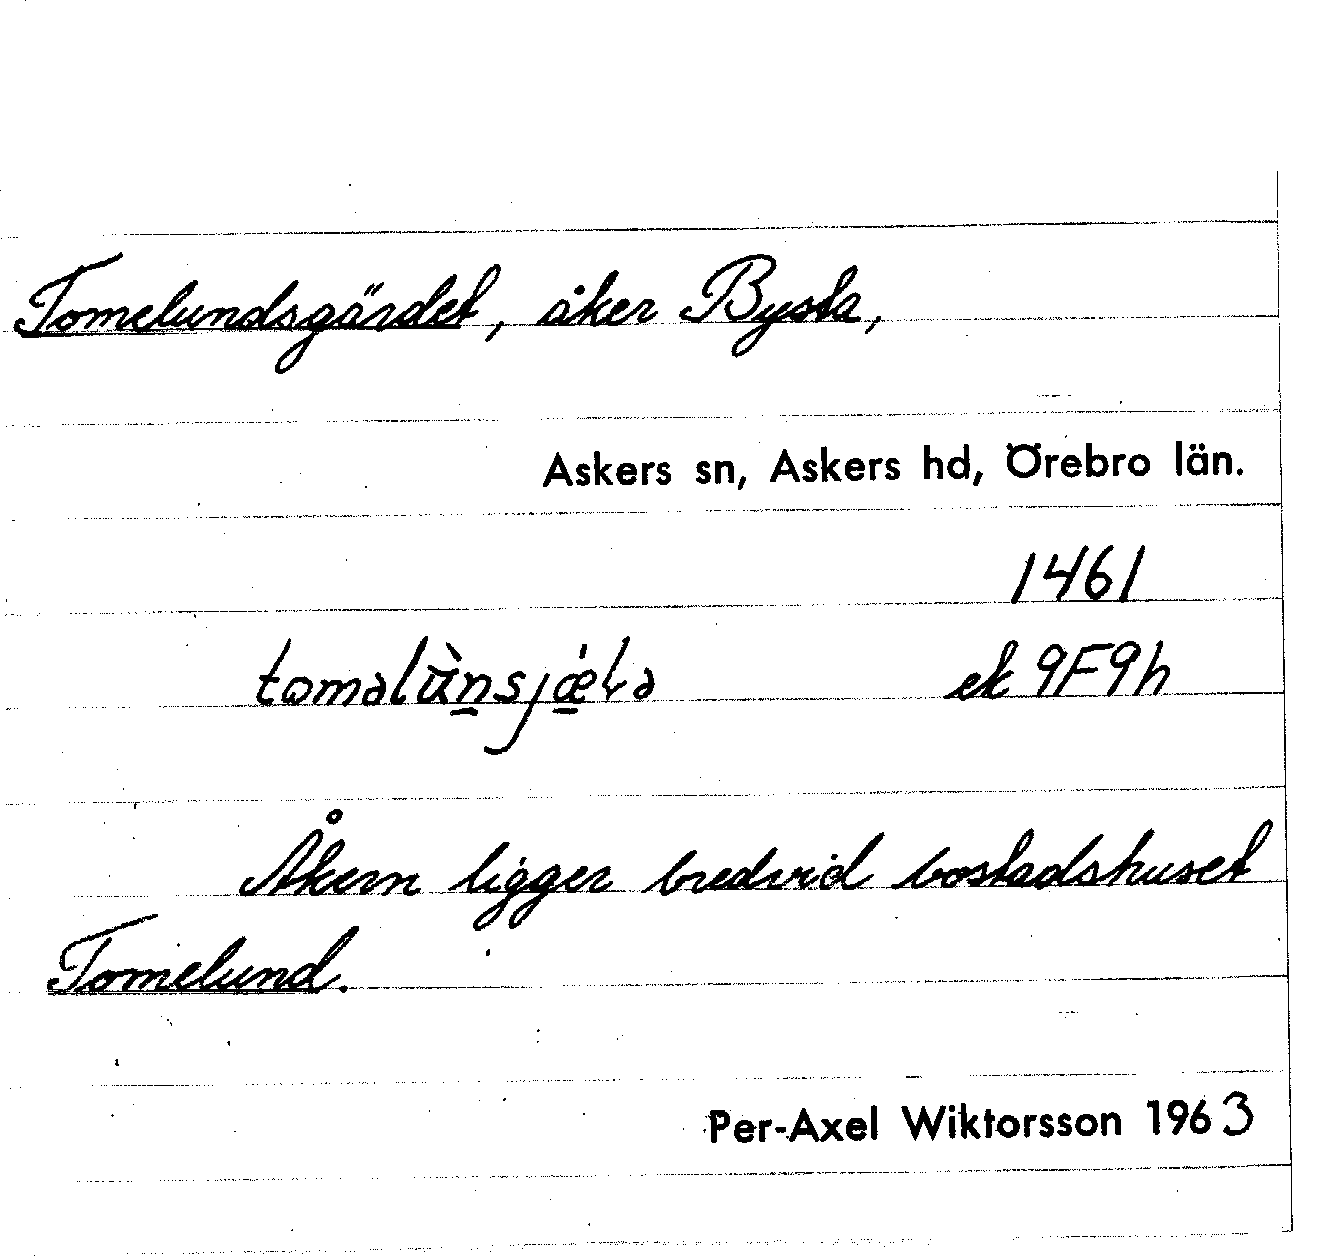 Tomelundsgärdet, åker Bysta,
Askers sn, Askers hd, Örebro län.
1461
ek 9F9h
Åkern ligger bredvid bostadshuset
Tomelund.
Per-Axel Wiktorsson 1963